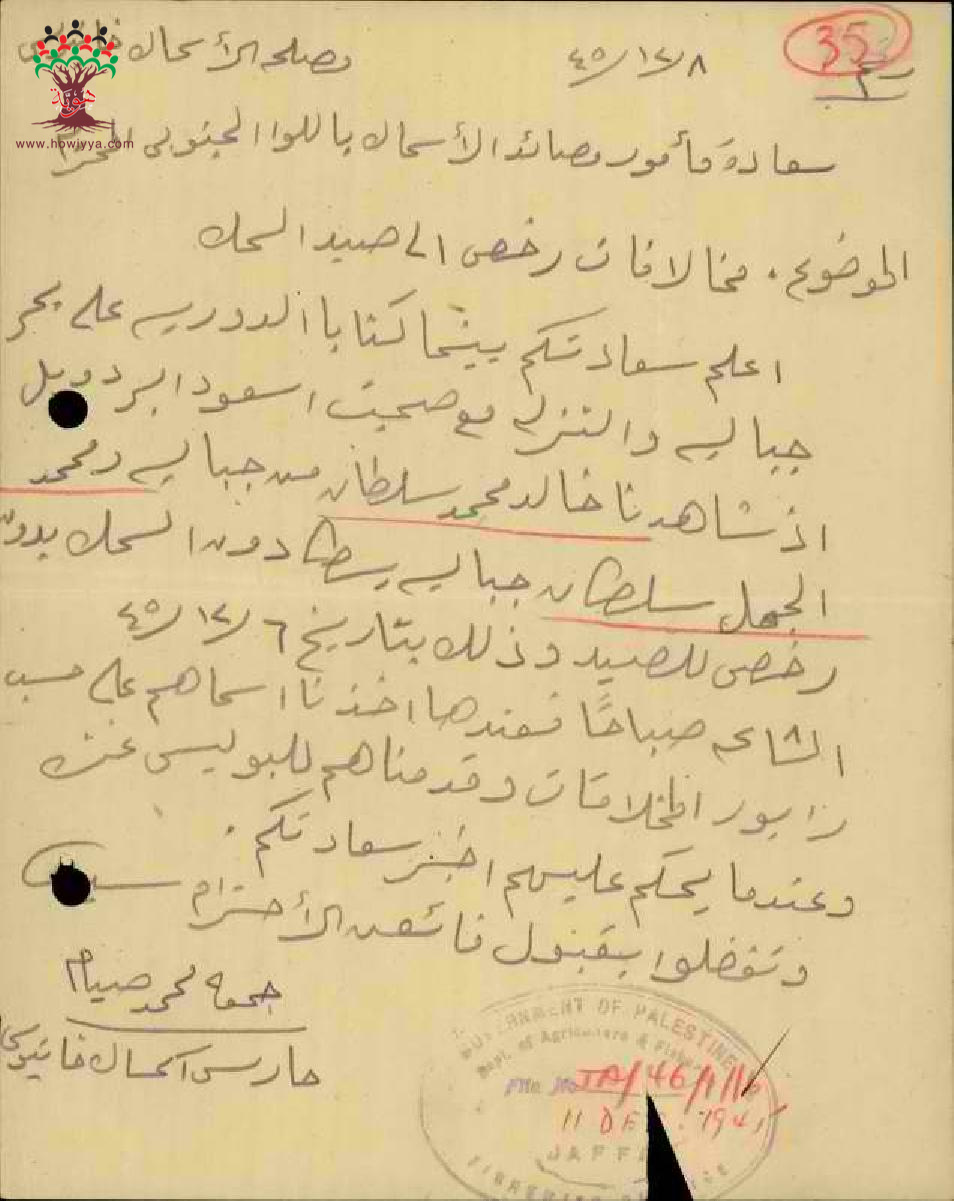 مصلحة الأسماك خانيونس
٤٥/١٢/٨
رقم
35
هوية
www.howiyya.com
سعادة مأمور مصائد الأسماك باللوا الجنوبي المحترم
الموضوع . مخالافات رخص الى صيد السمك
اعلم سعادتكم بينما كنا با الدوريه على بحر
جباليه والنزله مع صحبت اسعود البردويل
اذ شاهدنا خالد محمد سلطان من جباليه ومحمد
الجمل سلطان جباليه يسطادون السمك بدون
رخص للصيد وذلك بتاريخ ٤٥/١٢/٦
الساعه ٨ صباحًا فعندها اخذنا اسماهم على حسب
رابور المخلافات وقدمناهم للبوليس غزه
وعندما يحكم عليهم اخبر سعادتكم .
وتفضلوا بقبول فائق الأحترام سيدي
جمعه محمد صيام
حارس اسماك خانيونس
GOVERNMENT OF PALESTINE
Dept. of Agriculture & Fisheries
File No JA/46/1/16
11 DEC 1945
JAFFA
FISHERIES SERVICE